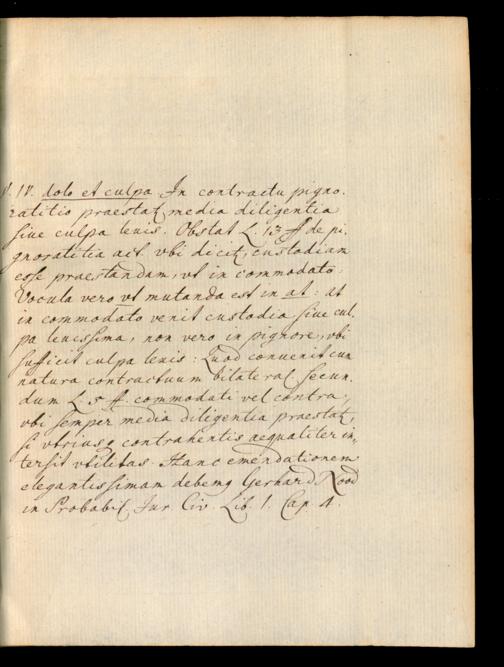 IV. dolo et culpa. In contractu pigno.
ratitio praestat media diligentia
sive culpa levis. Obstat L. 13 ff de pi,
gnoratitia act. vbi dicit, custodiam
esse praestandam, vt in commodato.
Vocula vero vt mutanda est in at: at
in commodato venit custodia sive cul,
pa levissima, non vero in pignore, vbi
sufficit culpa levis: Quod convenit cum
natura contractuum bilateral secun,
dum L. 5 ff. commodati vel contra,
vbi semper media diligentia praestat,
si vtriusq contrahentis aequaliter in,
tersit vtilitas. Hanc emendationem
elegantissimam debemq Gerhard Nood
in Probabil Jur Civ. Lib. 1. Cap. 4.